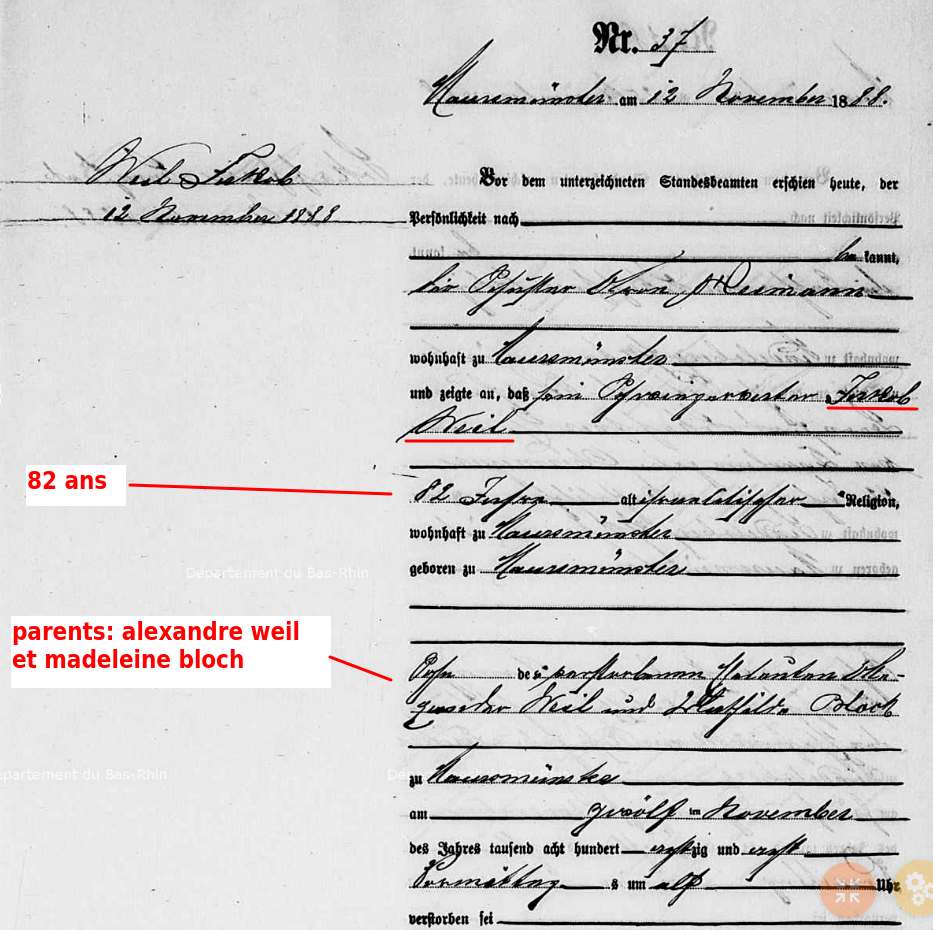 Nr. 37
Maursmünster am 12 November 1888.
Weil Jakob
12 November 1888
Vor dem unterzeichneten Standesbeamten erschien heute, der
Persönlichkeit nach
be kannt,
der Schuster Aron
wohnhaft zu Maursmünster
und zeigte an, daß sein Schwiegervater Jakob
Weil
82 ans
82 Jahre alt israelitischer Religion,
wohnhaft zu Maursmünster
geboren zu Maursmünster
Département du Bas-Rhin
parents: alexandre weil
et madeleine bloch
Sohn des verstorbenen
Weil und Bloch
Département du Bas-Rhin
zu Maursmünster
am zwölften November
des Jahres tausend acht hundert achtzig und acht
Vormittags um elf Uhr
verstorben sei